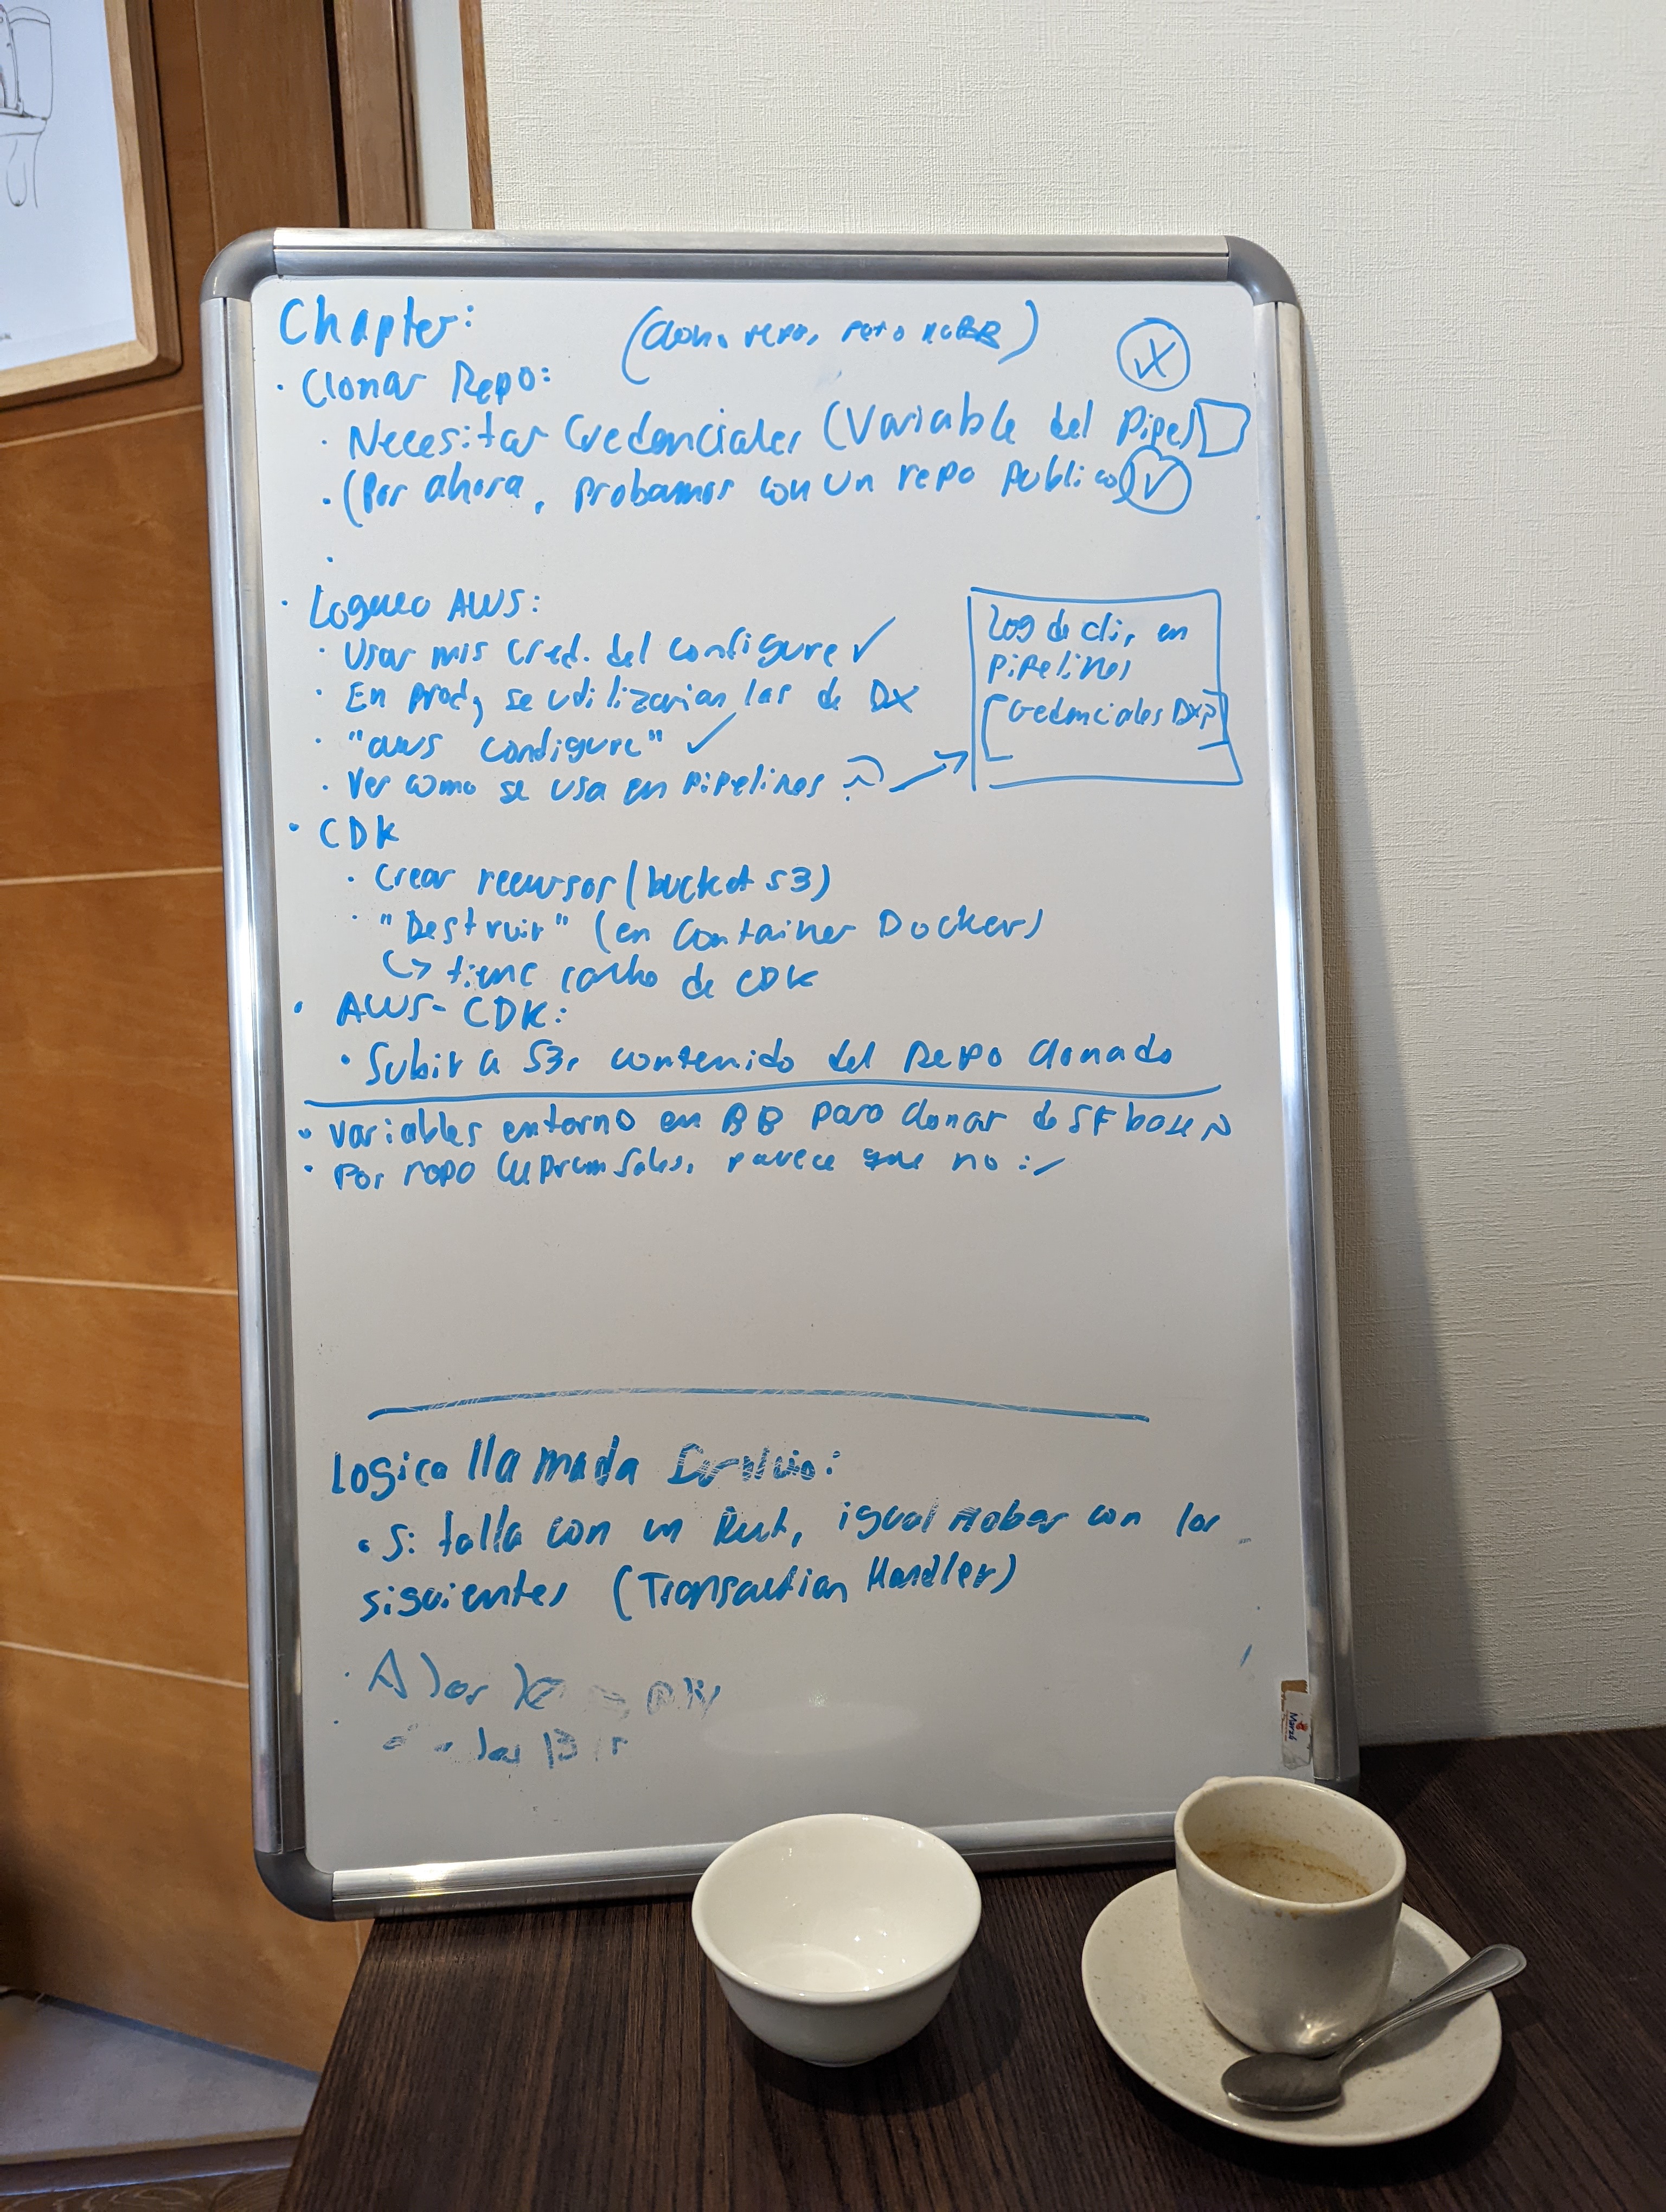 Chapter:
(Clona repo, pero no BB)
· Clonar Repo:
· Necesitar Credenciales (Variable del Pipe)
· (Por ahora, probamos con un repo publico)
· Logueo AWS:
· Usar mis cred. del configure ✓
· En prod, se utilizarian las de DX
· "aws configure" ✓
· Ver como se usa en Pipelines ?
Log de cli, en
pipelines
[Credenciales DX?]
· CDK
· Crear recursos (bucket s3)
· "Destruir" (en Container Docker)
↳ tiene cacho de CDK
· AWS-CDK:
· Subir a S3, contenido del Repo clonado
· Variables entorno en BB para clonar de SF base
· Por repo Cuprum Sales, parece que no :/
Logica llamada Servicio:
· Si falla con un Rut, igual probar con los
siguientes (Transaction Handler)
A los
los